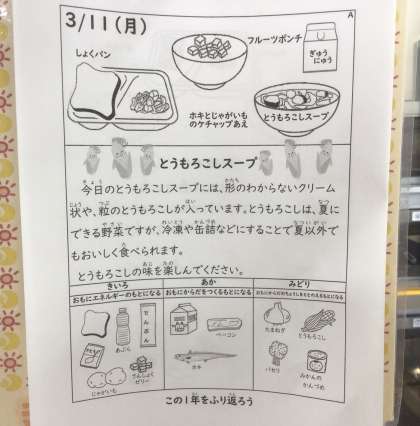 A
3/11(月)
しょくパン
フルーツポンチ
ぎゅう
にゅう
ホキとじゃがいも
のケチャップあえ
とうもろこしスープ
とうもろこしスープ
今日のとうもろこしスープには、形のわからないクリーム
状や、粒のとうもろこしが入っています。とうもろこしは、夏に
できる野菜ですが、冷凍や缶詰などにすることで夏以外で
もおいしく食べられます。
とうもろこしの味を楽しんでください。
きいろ
あか
みどり
おもにエネルギーのもとになる
おもにからだをつくるもとになる
おもにからだのちょうしをととのえるもとになる
あぶら
でんぷん
じゃがいも
さんしょく
ゼリー
ベーコン
ホキ
たまねぎ
とうもろこし
パセリ
みかんの
かんづめ
この1年をふり返ろう